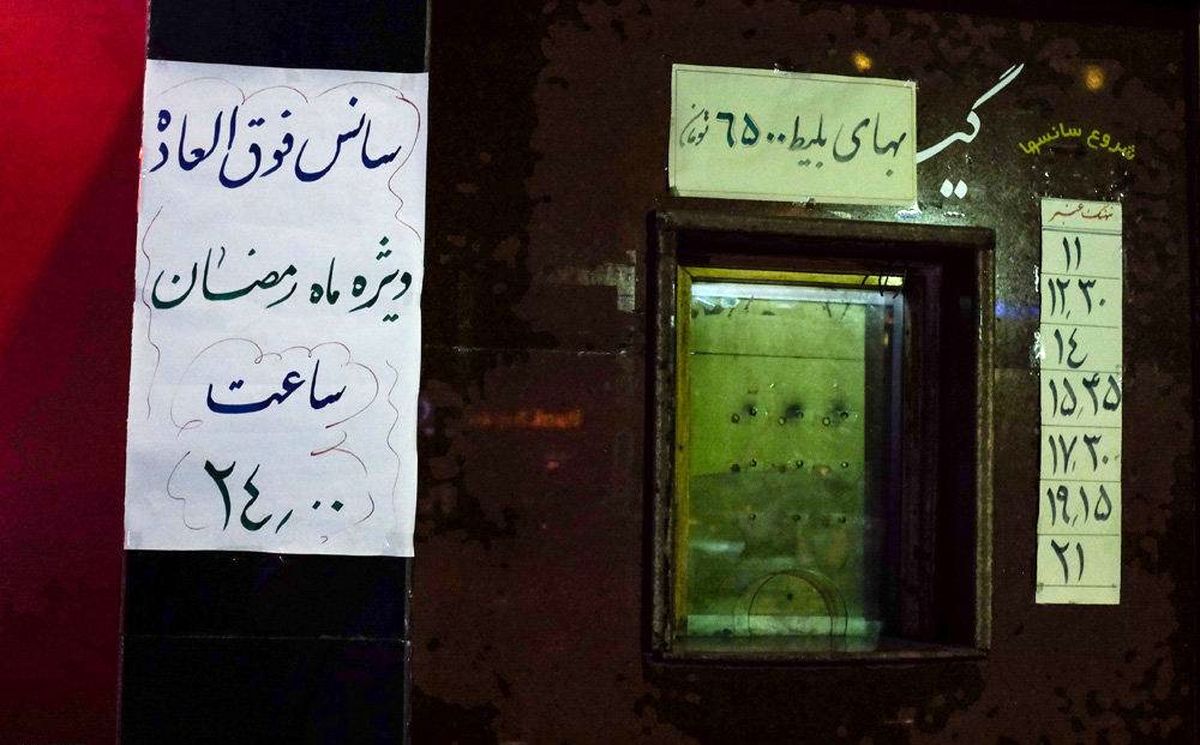 سانس فوق العاده
ویژه ماه رمضان
ساعت
۲٤٫۰۰
بهای بلیط ٦۵۰۰ تومان
شروع سانسها
۱۱
۱۲٫۳۰
۱٤
۱۵٫٤۵
۱۷٫۳۰
۱۹٫۱۵
۲۱